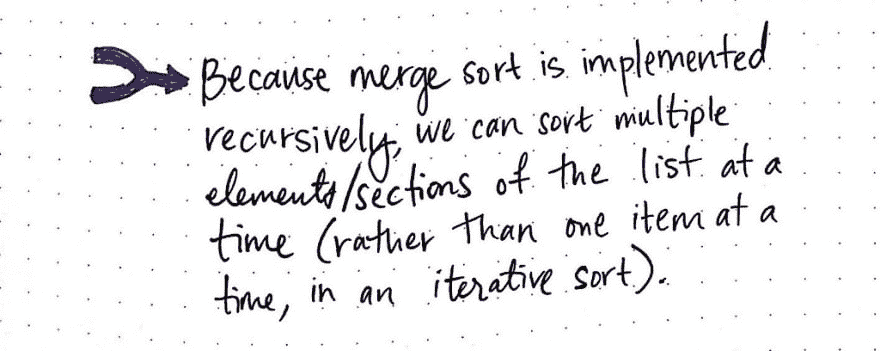 Because merge sort is implemented
recursively, we can sort multiple
elements/sections of the list at a
time (rather than one item at a
time, in an iterative sort).